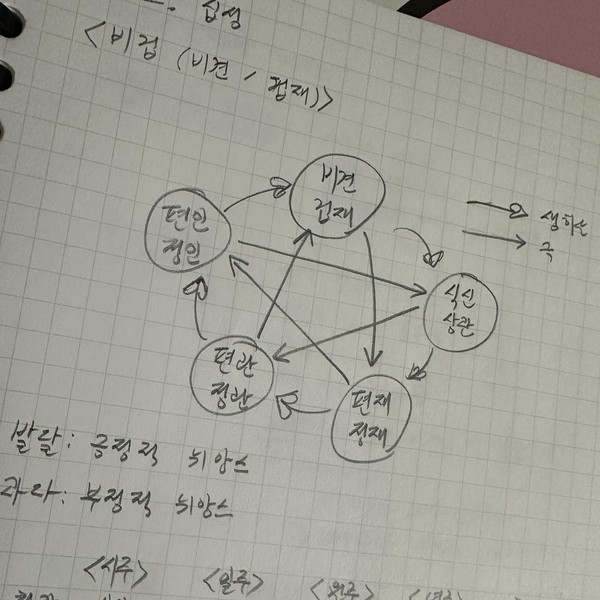 십성
<비겁 (비견 / 겁재)>
비견
겁재
편인
정인
생하는
극
식신
상관
편관
정관
편재
정재
발달: 긍정적 뉘앙스
과다: 부정적 뉘앙스
<시주> <일주> <월주> <년주>